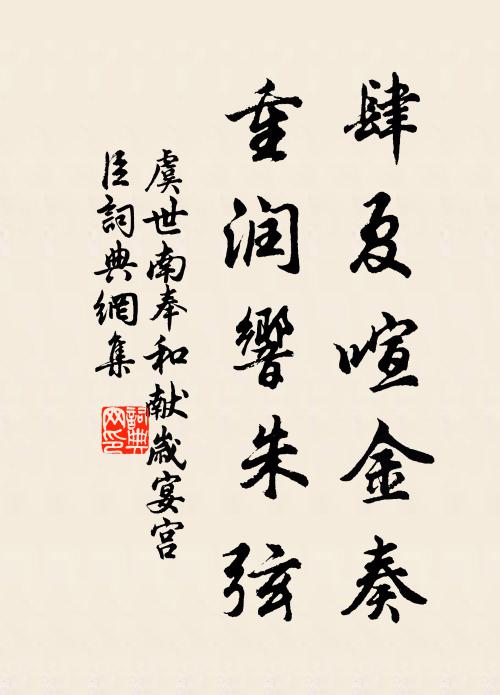 肆夏喧金奏
重润響朱弦
虞世南奉和献歲宴宫
臣詞典網集
詞典网印